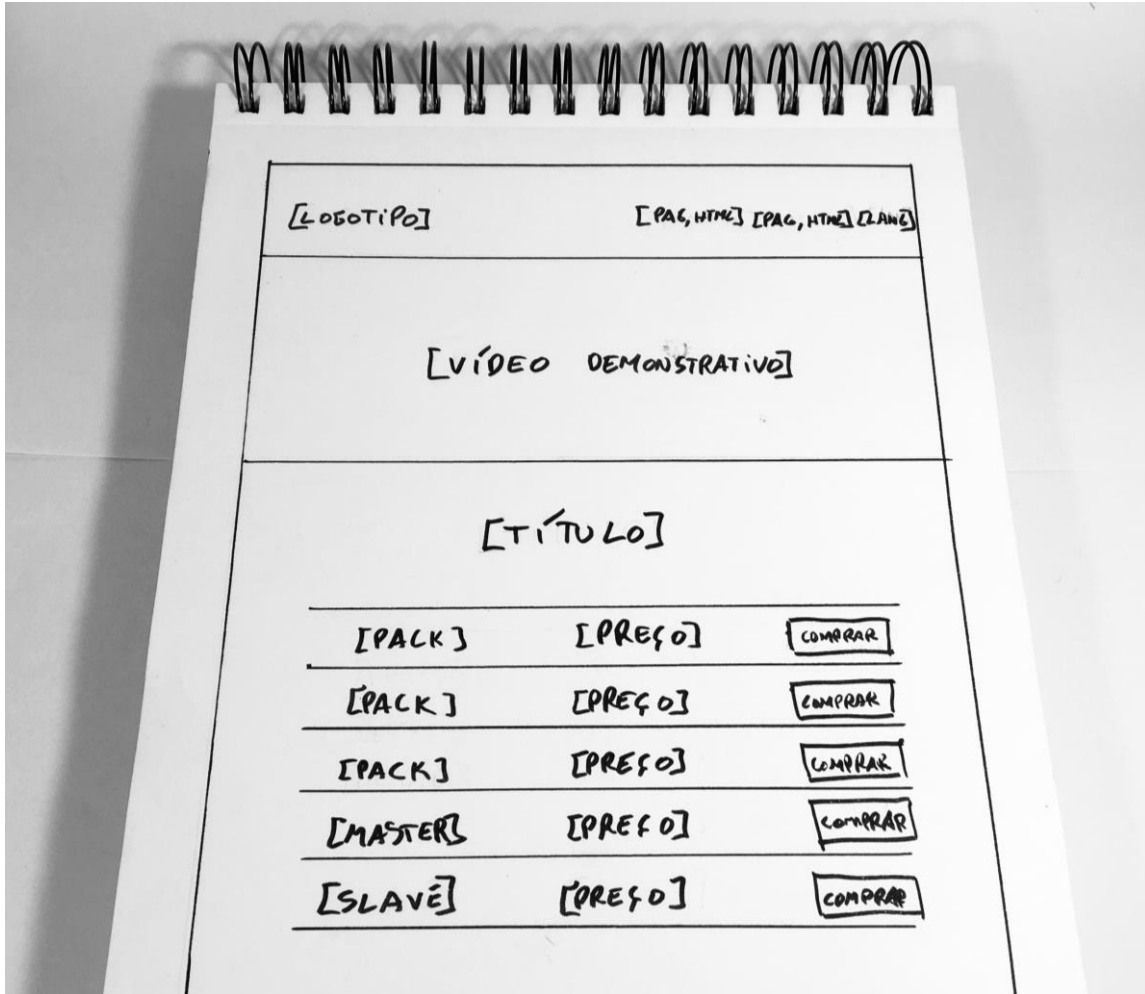 [LOGOTiPO] [PAG, HTML] [PAG, HTML] [LANG]
[VÍDEO DEMONSTRATiVO]
[TÍTULO]
[PACK] [PREÇO] COMPRAR
[PACK] [PREÇO] COMPRAR
[PACK] [PREÇO] COMPRAR
[MASTER] [PREÇO] COMPRAR
[SLAVE] [PREÇO] COMPRAR